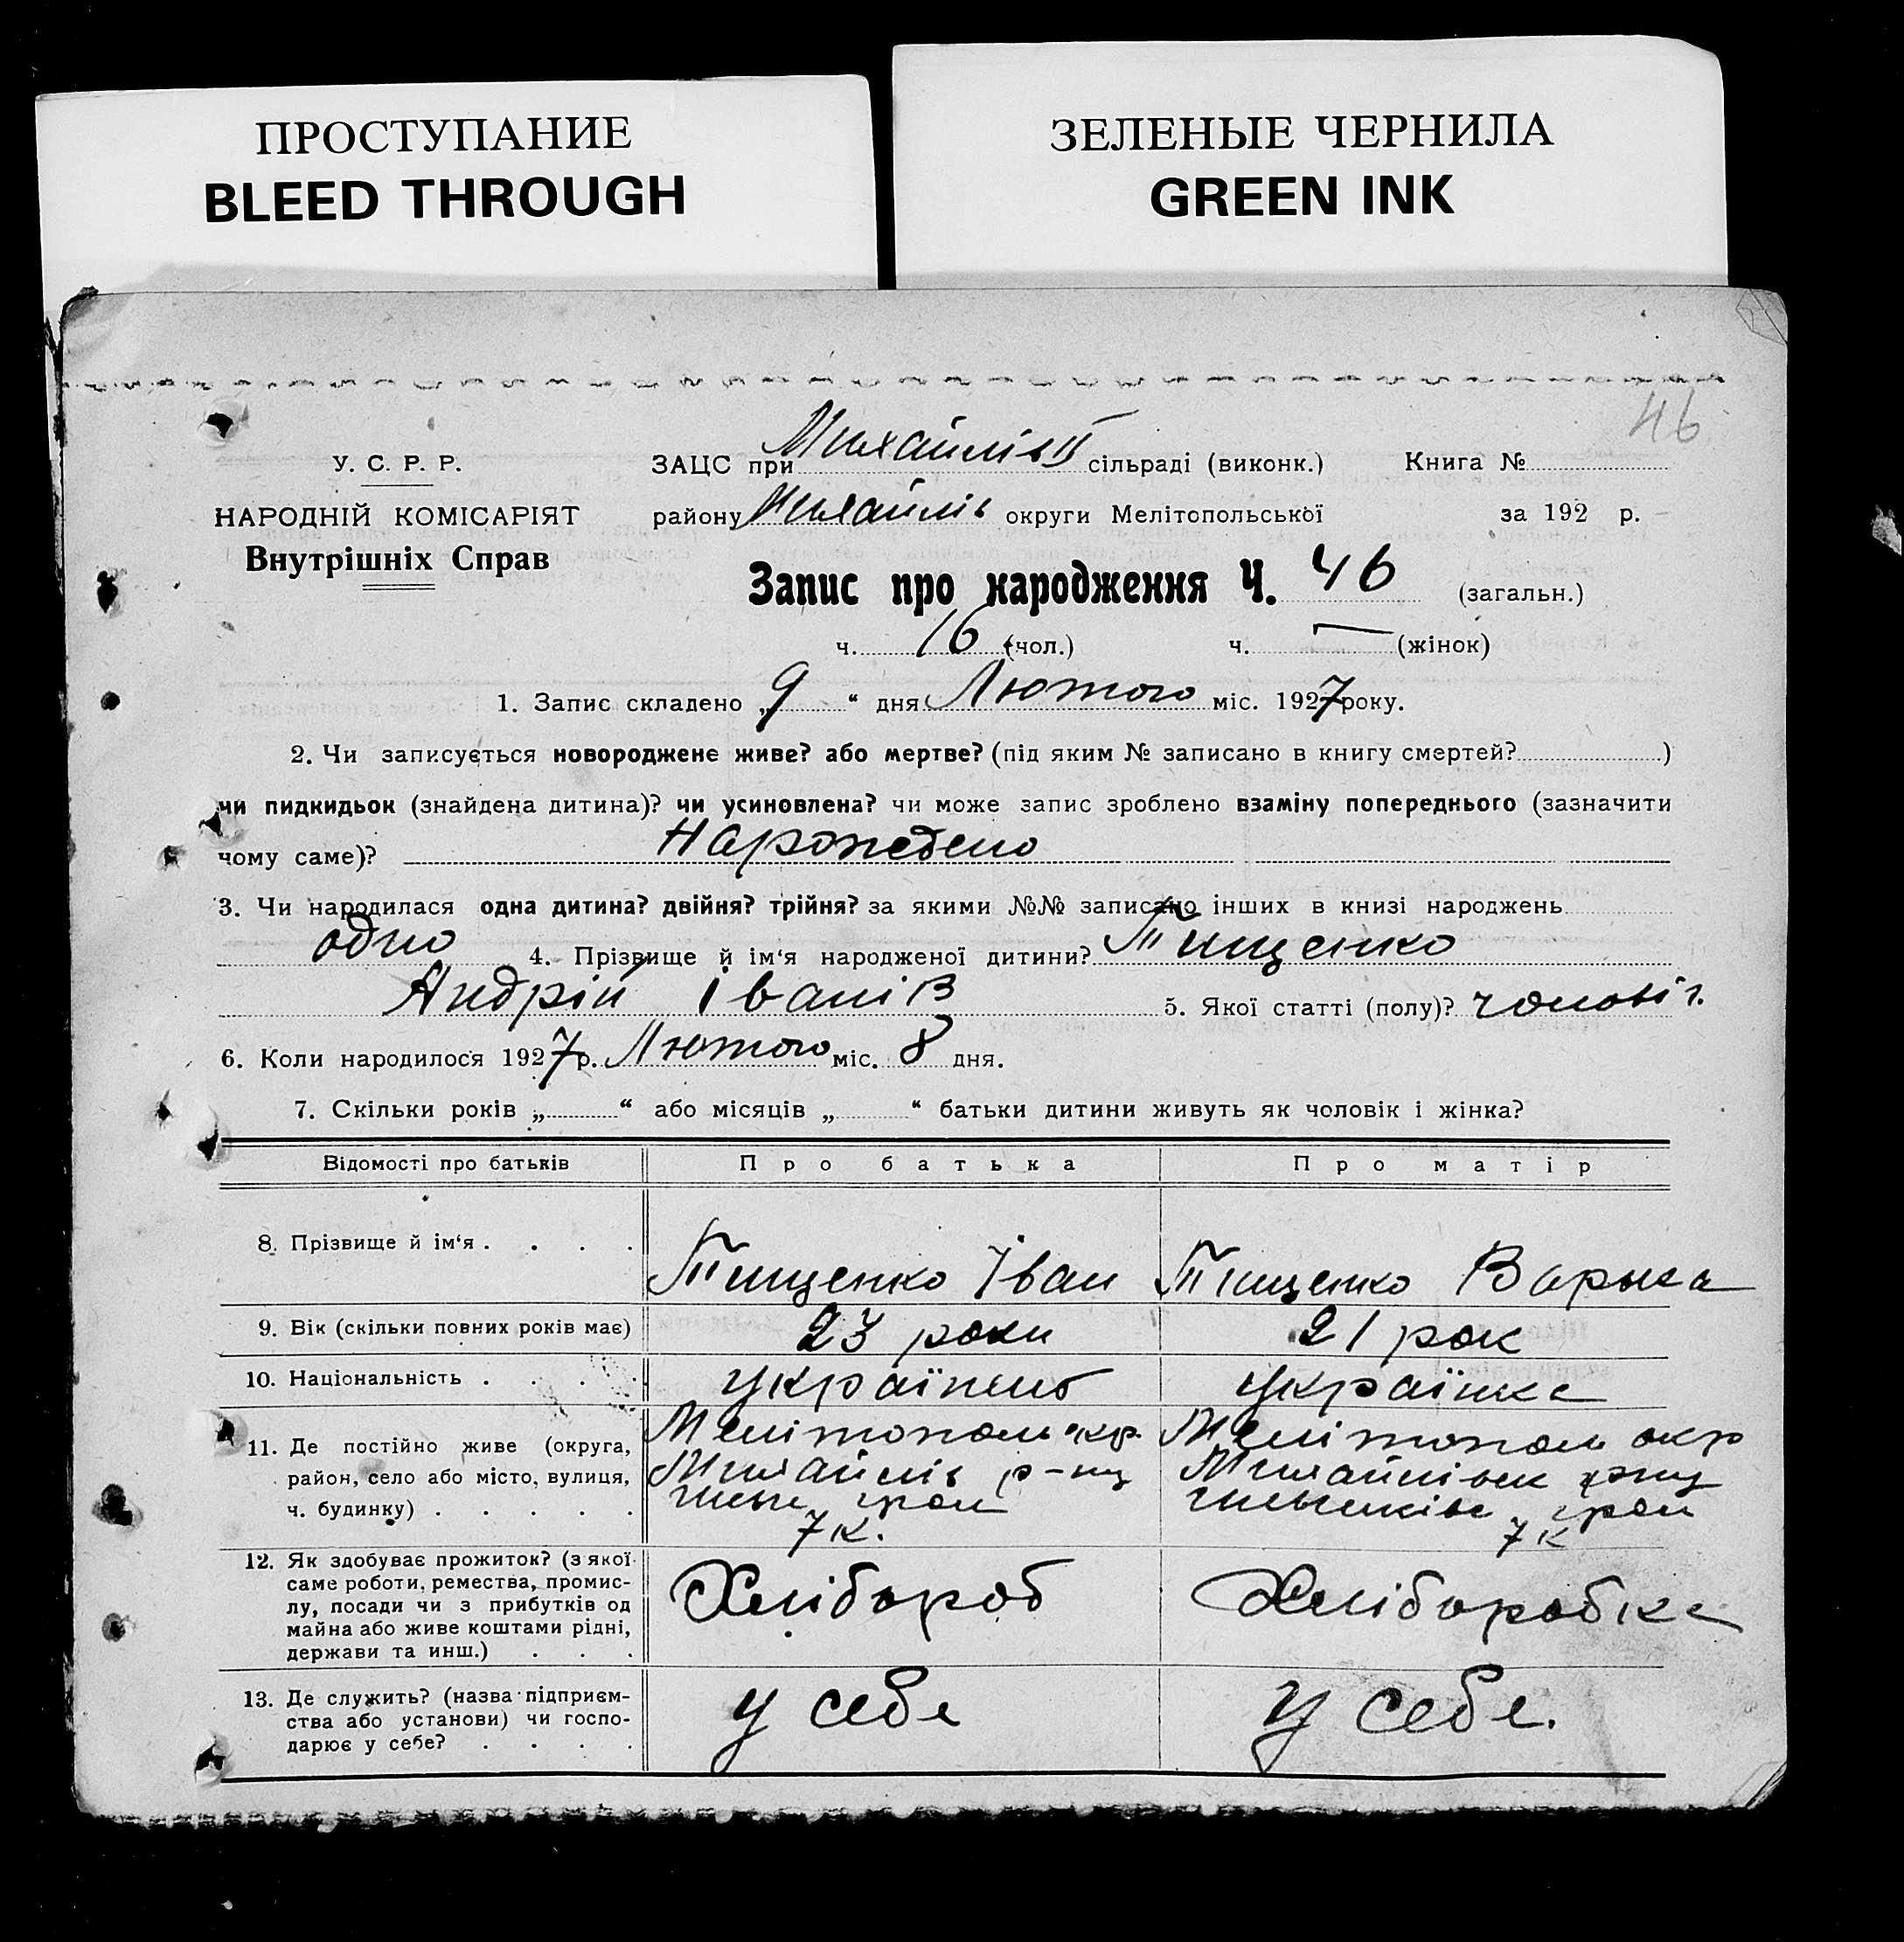 ПРОСТУПАНИЕ
BLEED THROUGH
ЗЕЛЕНЫЕ ЧЕРНИЛА
GREEN INK
46
У. С. Р. Р.
НАРОДНІЙ КОМІСАРІЯТ
Внутрішніх Справ
ЗАЦС при Михайлів ІІ сільраді (виконк.) Книга №
району Михайлів округи Мелітопольської за 192 р.
Запис про народження Ч. 46 (загальн.)
ч. 16 (чол.) ч. — (жінок)
1. Запис складено „ 9 “ дня Лютого міс. 1927 року.
2. Чи записується новороджене живе? або мертве? (під яким № записано в книгу смертей? )
чи пидкидьок (знайдена дитина)? чи усиновлена? чи може запис зроблено взаміну попереднього (зазначити
чому саме)? Нарожедено
3. Чи народилася одна дитина? двійня? трійня? за якими №№ записано інших в книзі народжень
одно 4. Прізвище й ім‘я народженої дитини? Тищенко
Андрій Іванів 5. Якої статті (полу)? чоловіч.
6. Коли народилося 1927 р. Лютого міс. 8 дня.
7. Скільки років „ “ або місяців „ “ батьки дитини живуть як чоловік і жінка?
Відомості про батьків Про батька Про матір
8. Прізвище й ім‘я . . . . Тищенко Іван Тищенко Варька
9. Вік (скільки повних років має) 23 роки 21 рок
10. Національність . . . . українець українка
11. Де постійно живе (округа, Мелітополь окр. Мелітополь окр
район, село або місто, вулиця, Михайлів р-ну Михайлівск рну
ч. будинку) . . . . .
7 к. 7 к
12. Як здобуває прожиток? (з якої
саме роботи, ремества, промис-
лу, посади чи з прибутків од Хлібороб Хліборобка
майна або живе коштами рідні,
держави та инш.) . . .
13. Де служить? (назва підприєм-
ства або установи) чи госпо- у себе у себе.
дарює у себе? . . . .